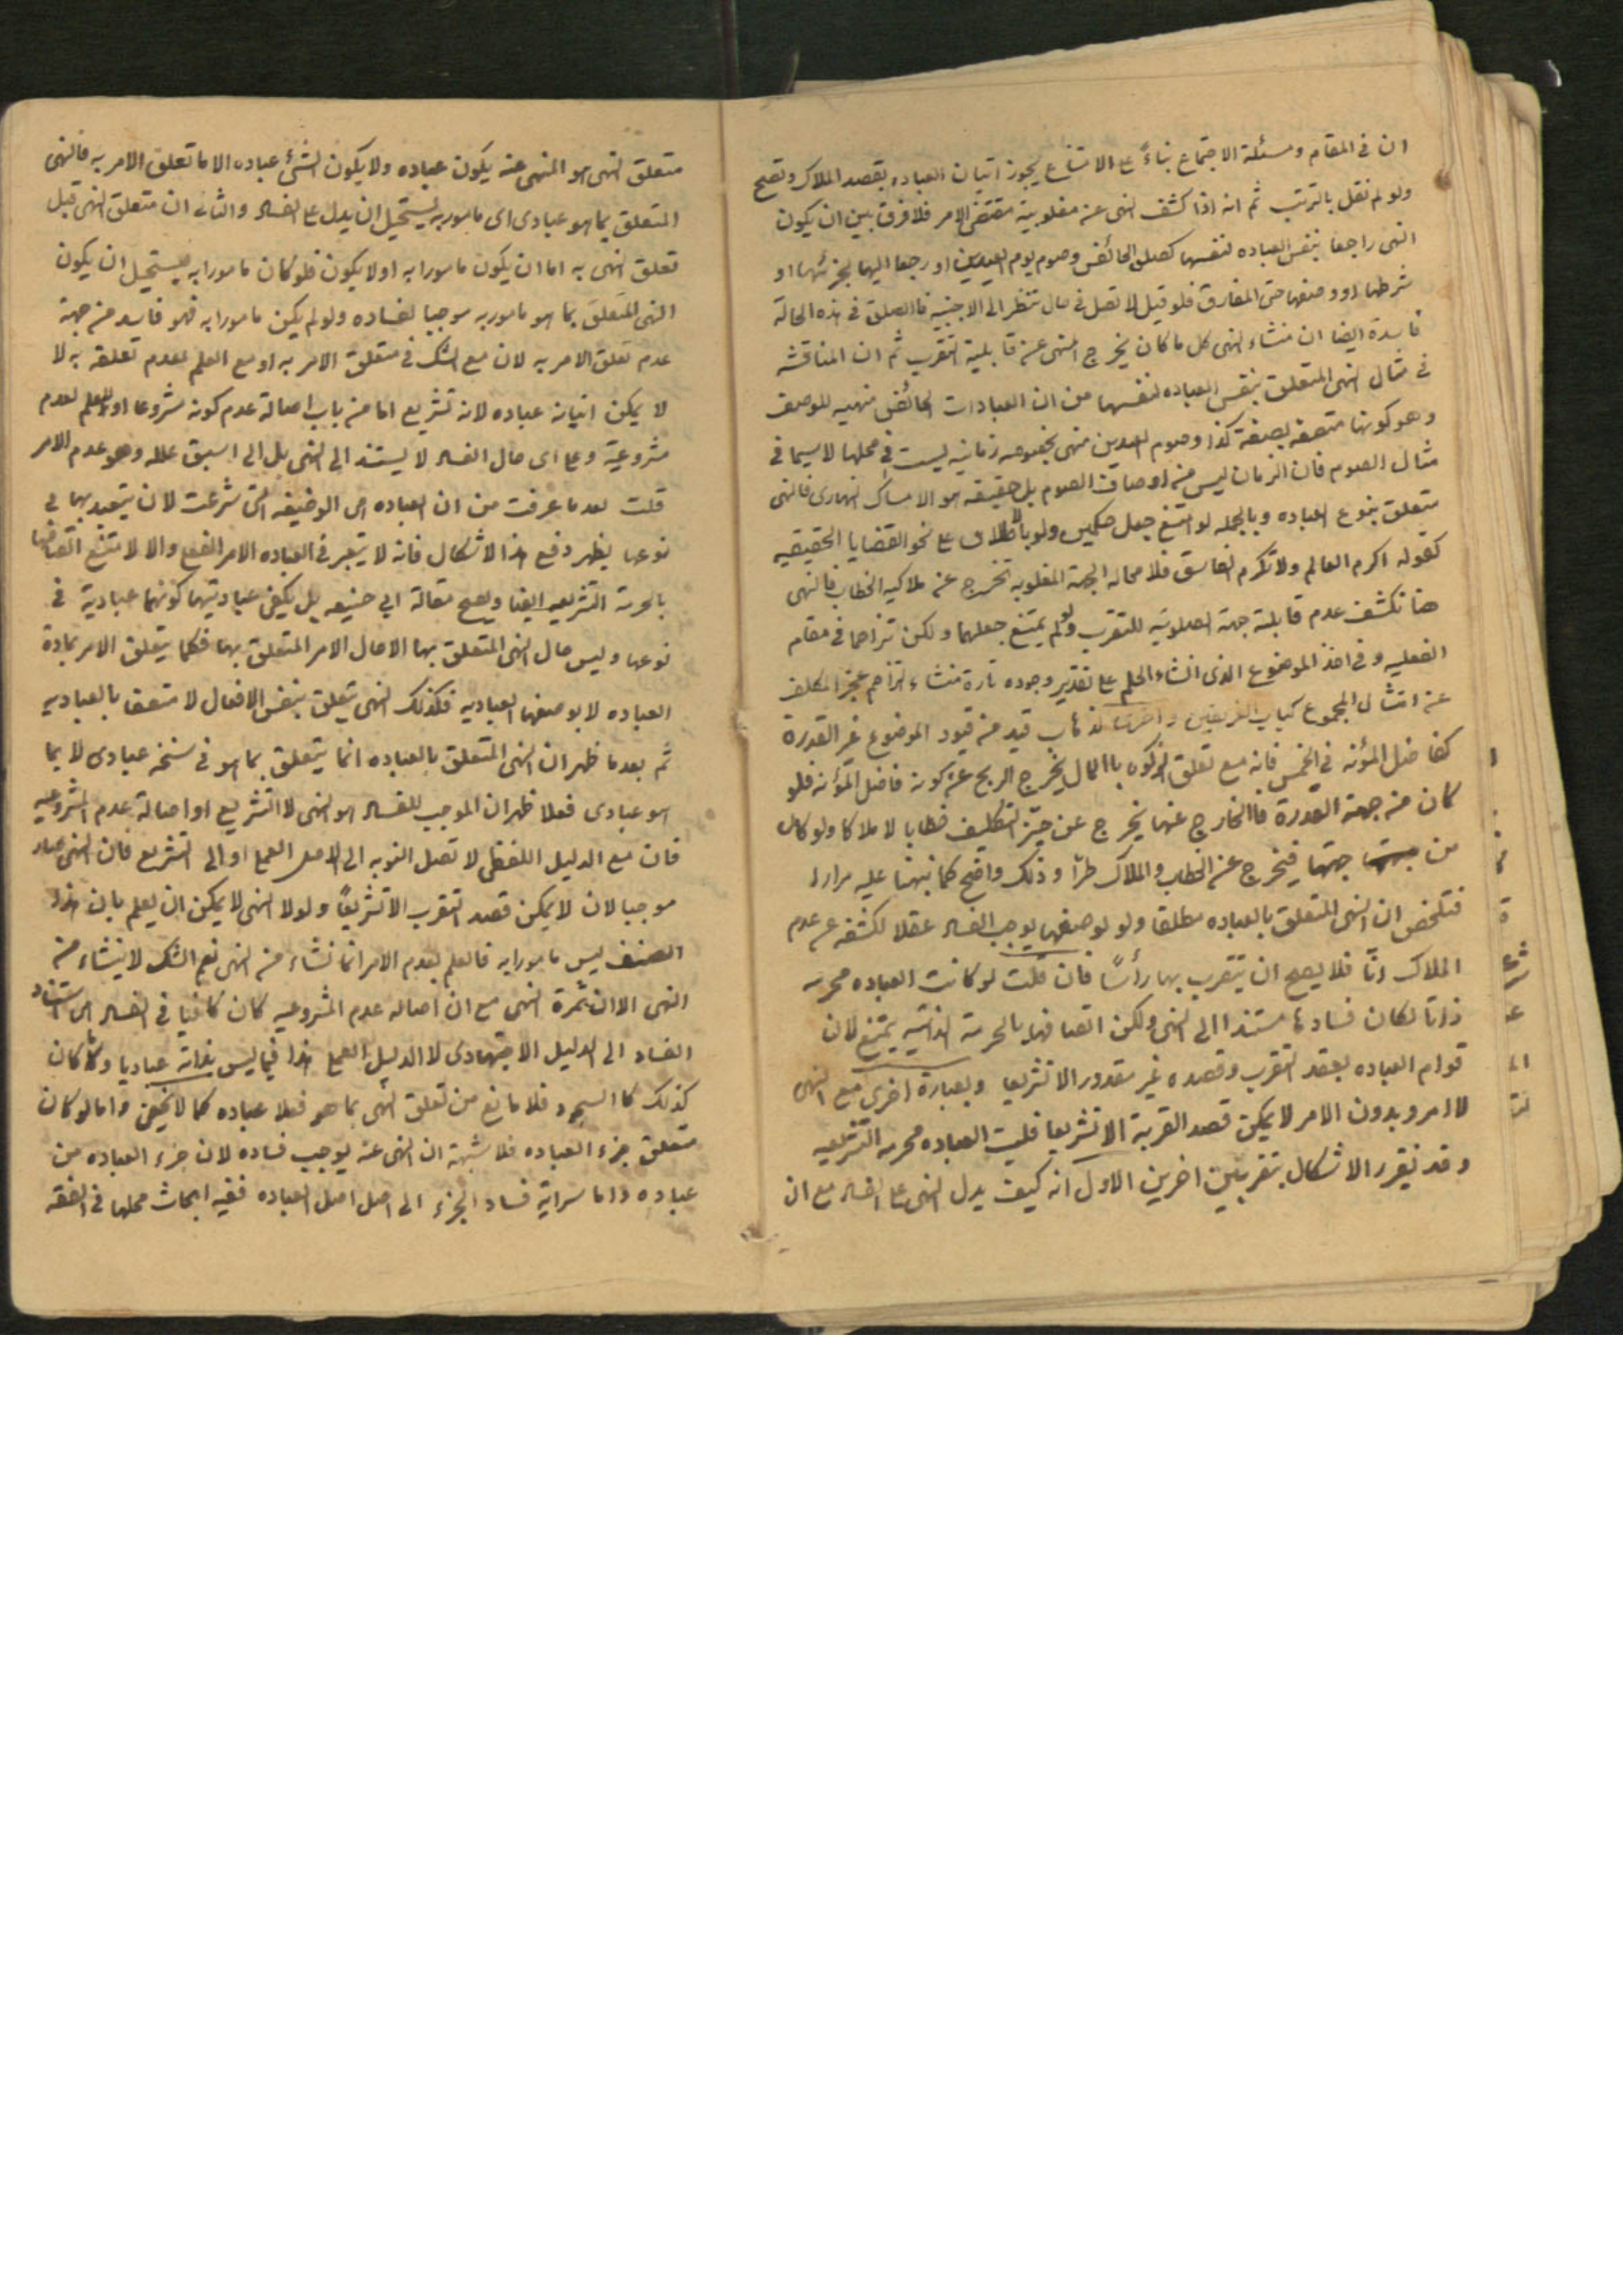 ان في المقام ومسئلة الاجتماع بناءً على الامتناع يجوز اتيان العباده بقصد الملاك وتصح
ولو لم نقل بالترتب ثم انه اذا كشف النهى عنه مغلوبية مقتضى الامر فلا فرق بين ان يكون
النهى راجعا بنفس العباده لنفسها كصلوة الحائض وصوم يوم العيدين او رجعا اليها لجزئها او
شرطها او وصفها حتى المفارق فلو قيل لا تصل في حال تنظر الى الاجنبيه فالصلوة في هذه الحالة
فاسدة ايضا ان منشاء النهى كل ما كان يخرج المنهى عنه قابلية التقرب ثم ان المناقشه
في مثال النهى المتعلق بنفس العباده لنفسها من ان العبادات الحائض منهيه للوصف
وهو كونها متصفه بصفة كذا وصوم العيدين منهى بخصوصه زمانيه ليست في محلها لا سيما في
مثال الصوم فان الزمان ليس من اوصاف الصوم بل حقيقه هو الامساك النهارى فالنهى
متعلق بنوع العباده وبالجمله لو امتنع جعل حكمين ولو بالاطلاق على نحو القضايا الحقيقيه
كقوله اكرم العالم ولا تكرم الفاسق فلا محاله الجهة المغلوبه تخرج عن ملاكيه الخطاب فالنهى
هنا تكشف عدم قابلية جهة الصلوتيه للتقرب ولو لم يمتنع جعلهما ولكن تزاحما في مقام
الفعليه وفي اخذ الموضوع الذى انشاء الحكم على تقدير وجوده تارة منشاء التزاحم عجز المكلف
عن امتثال المجموع كباب الغريقين واخرى لذهاب قيد من قيود الموضوع غير القدرة
كفاضل المؤنه في الخمس فانه مع تعلق الزكوة بالمال يخرج الربح عن كونه فاضل المؤنه فلو
كان من جهة القدرة فالخارج عنها يخرج عن حيّز التكليف خطابا لا ملاكا ولو كان
من جهتها فيخرج عن الخطاب والملاك طرّا وذلك واضح كما نبهنا عليه مرارا
فتلخص ان النهى المتعلق بالعباده مطلقا ولو لوصفها يوجب الفساد عقلا لكشفه عن عدم
الملاك انّا فلا يصح ان يتقرب بها رأسًا فان قلت لو كانت العباده محرمه
ذاتا لكان فسادها مستندا الى النهى ولكن اتصافها بالحرمة الذاتيه يمتنع لان
قوام العباده بقصد التقرب وقصده غير مقدور الا تشريعا وبعبارة اخرى مع النهى
لا امر وبدون الامر لا يمكن قصد القربة الا تشريعا فليست العباده محرمه الا تشريعيه
وقد نقرر الاشكال بتقريبين اخرين الاول انه كيف يدل النهى على الفساد مع ان
متعلق النهى هو المنهى عنه يكون عباده ولا يكون الشئ عباده الا ما تعلق الامر به فالنهى
المتعلق بما هو عبادى اى مامور به يستحيل ان يدل على الفساد والثانى ان متعلق النهى قبل
تعلق النهى به اما ان يكون مامورا به او لا يكون فلو كان مامورا به فيستحيل ان يكون
النهى المتعلق بما هو مامور به موجبا لفساده ولو لم يكن مامورا به فهو فاسد من جهة
عدم تعلق الامر به لان مع الشك في متعلق الامر به او مع العلم بعدم تعلقه به لا
لا يمكن اتيانه عباده لانه تشريع اما من باب اصالة عدم كونه مشروعا او للعلم بعدم
مشروعيته وعلى اى حال الفساد لا يستند الى النهى بل الى اسبق علله وهو عدم الامر
قلت بعد ما عرفت من ان العباده هى الوضيفه التى شرعت لان يتعبد بها في
نوعها يظهر دفع هذا الاشكال فانه لا يعتبر في العباده الامر الفعلى والا لامتنع اتصافها
بالحرمة التشريعيه ايضا ويصح مقالة ابى حنيفه بل يكفى عباديتها كونها عبادية في
نوعها وليس حال النهى المتعلق بها الا حال الامر المتعلق بها فكما يتعلق الامر بمادة
العباده لا بوصفها العباديه فكذلك النهى يتعلق بنفس الافعال لا متصفا بالعباديه
ثم بعد ما ظهر ان النهى المتعلق بالعباده انما يتعلق بما هو في سنخه عبادى لا بما
هو عبادى فعلا ظهر ان الموجب للفساد هو النهى لا التشريع او اصالة عدم المشروعيه
فان مع الدليل اللفظى لا تصل النوبه الى الاصل العملى او الى التشريع فان النهى صار
موجبا لان لا يمكن قصد التقرب الا تشريعًا ولولا النهى لا يمكن ان يعلم بان هذا
الصنف ليس مامورا به فالعلم بعدم الامر انما نشاء من النهى نعم الشك لا ينشاء من
النهى الا ان ثمرة النهى مع ان اصاله عدم المشروعيه كان كافيا في الفساد هى استناد
الفساد الى الدليل الاجتهادى لا الدليل العملى هذا فيما ليس بذاته عباديا واما كان
كذلك كالسجود فلا مانع من تعلق النهى بما هو فعلا عباده كما لا يخفى واما لو كان
متعلق جزء العباده فلا شبهة ان النهى عنه يوجب فساده لان جزء العباده من
عباده واما سراية فساد الجزء الى اصل اصل العباده ففيه ابحاث محلها في الفقه